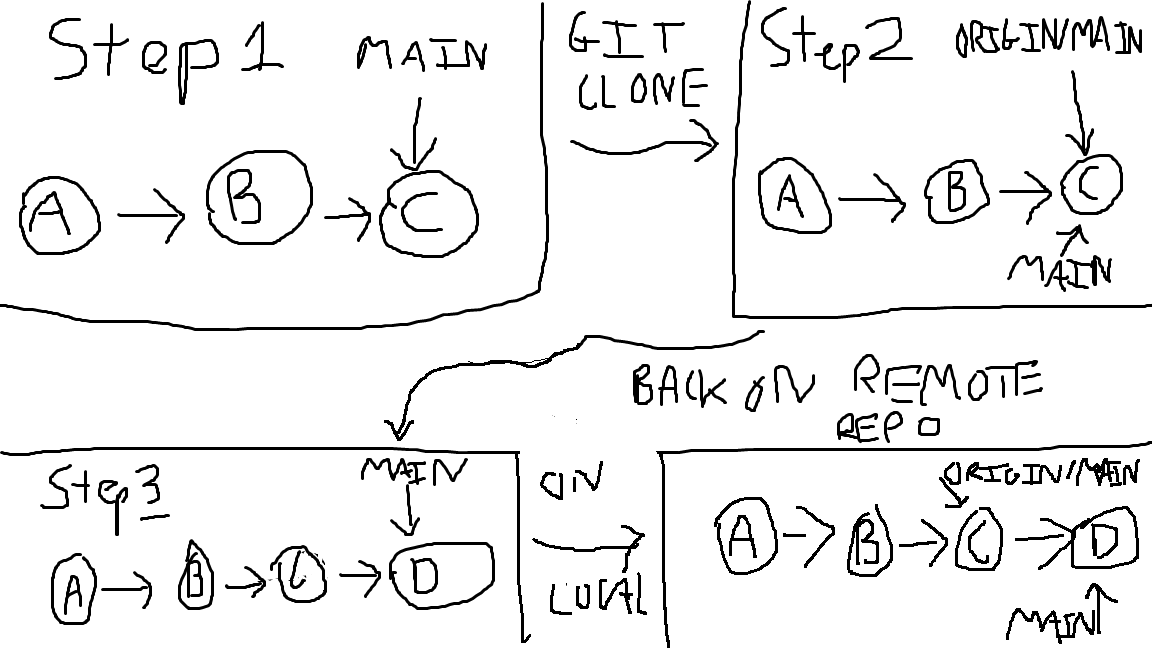 Step 1
MAIN
A → B → C
GIT
CLONE
Step 2
ORIGIN/MAIN
A → B → C
MAIN
BACK ON REMOTE
REPO
Step 3
MAIN
A → B → C → D
ON
LOCAL
ORIGIN/MAIN
A → B → C → D
MAIN